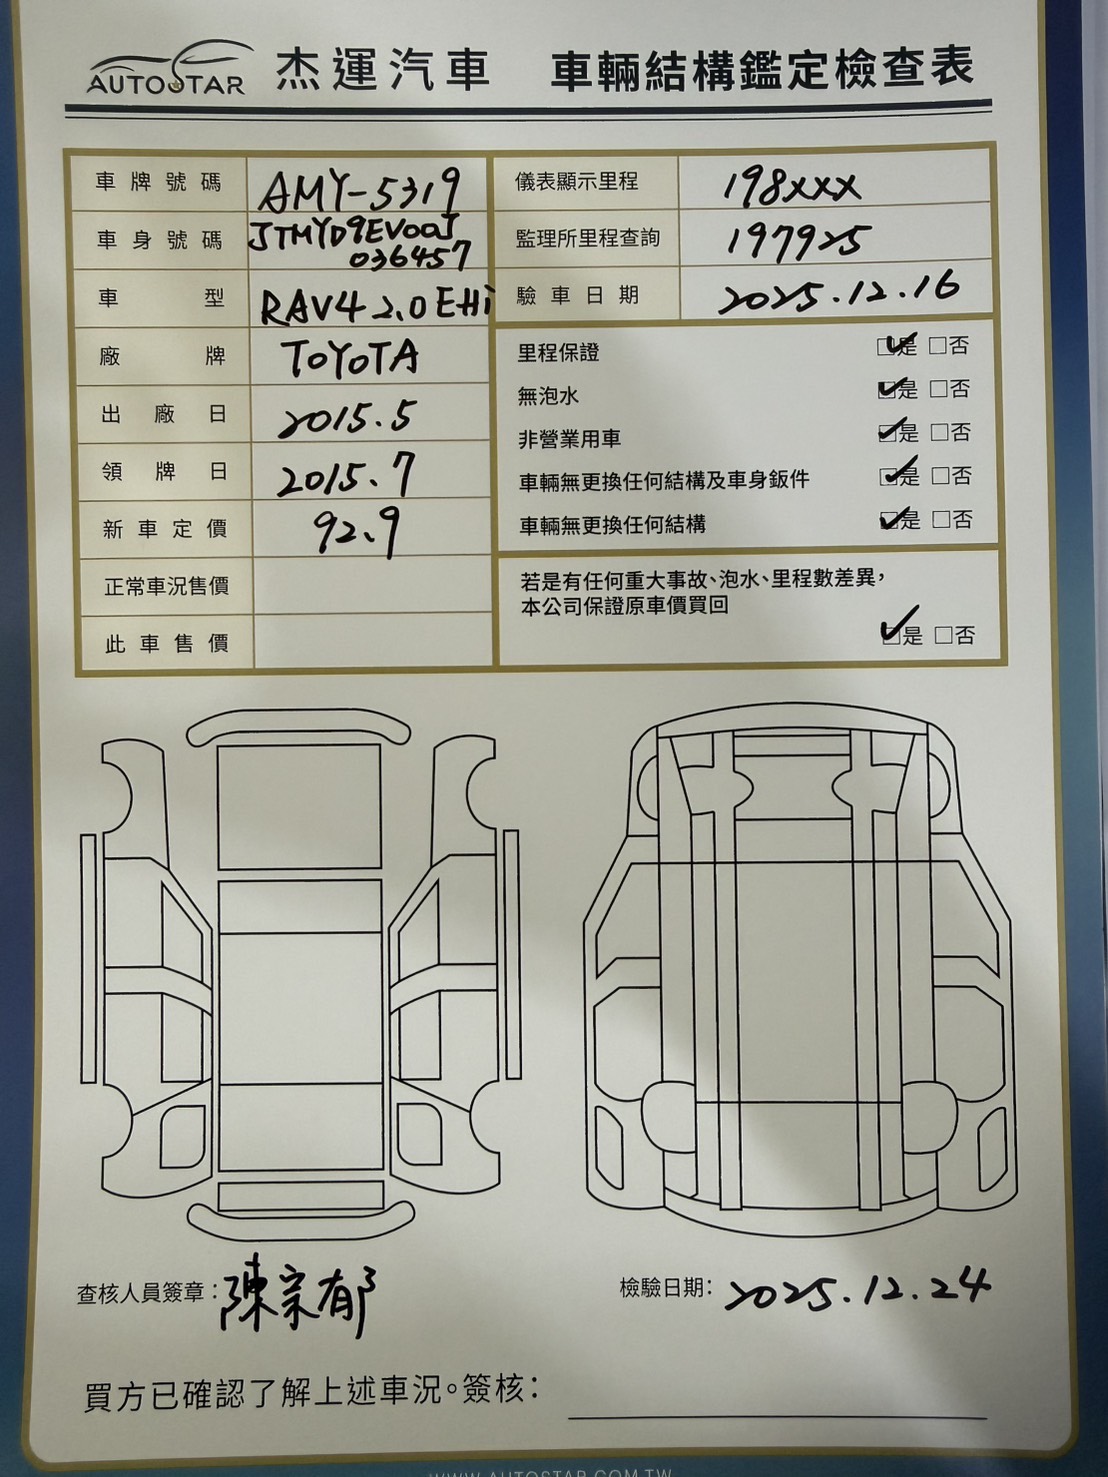 AUTOSTAR 杰運汽車 車輛結構鑑定檢查表
車牌號碼 AMY-5319
車身號碼 JTMYD9EV00J
036457
車型 RAV4 2.0 EHi
廠牌 ToYoTA
出廠日 2015.5
領牌日 2015.7
新車定價 92.9
正常車況售價
此車售價
儀表顯示里程 198xxx
監理所里程查詢 197925
驗車日期 2025.12.16
里程保證 ☑是 □否
無泡水 ☑是 □否
非營業用車 ☑是 □否
車輛無更換任何結構及車身鈑件 ☑是 □否
車輛無更換任何結構 ☑是 □否
若是有任何重大事故、泡水、里程數差異，
本公司保證原車價買回
☑是 □否
查核人員簽章：陳宗郁
檢驗日期：2025.12.24
買方已確認了解上述車況。簽核：
WWW.AUTOSTAR.COM.TW